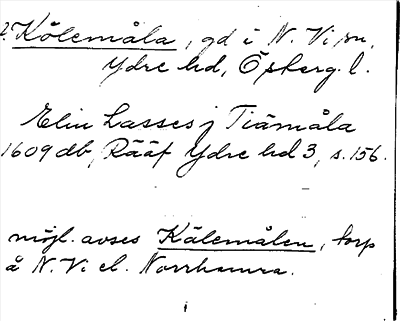 ? Kölemåla, gd i N. Vi sn,
Ydre hd, Ög l.
Elin Lasses j Tiämåla
1609 db, Rääf Ydre hd 3, s. 156.
möjl. avses Kälemålen, torp
å N. Vi el. Norrhamra.